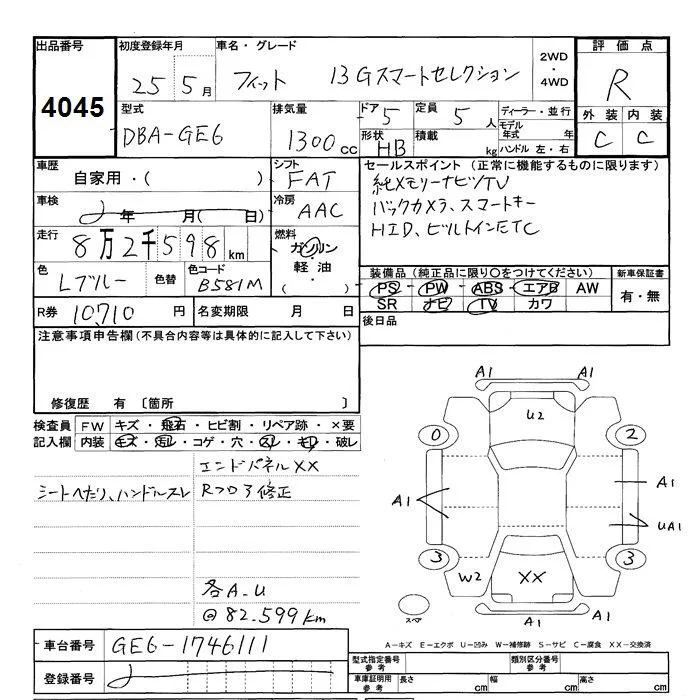 出品番号
4045
初度登録年月
25 5月
車名・グレード
フィット 13Gスマートセレクション
2WD
・
4WD
評価点
R
外装 内装
C C
型式
DBA-GE6
排気量
1300cc
ドア 5
定員 5人
形状 HB
積載 kg
ディーラー・並行
モデル年式 年
ハンドル 左・右
車歴
自家用・( )
シフト
FAT
車検
年 月( 日)
冷房
AAC
走行
8万2千598km
燃料
ガソリン
・
軽・油
( )
色
Lブルー
色替
色コード
B581M
R券 10,710円
名変期限 月 日
セールスポイント(正常に機能するものに限ります)
純メモリーナビTV
バックカメラ、スマートキー
HID、ビルトインETC
装備品(純正品に限り○をつけてください)
PS PW ABS エアB AW
SR ナビ TV カワ
新車保証書
有・無
後日品
注意事項申告欄(不具合内容等は具体的に記入して下さい)
修復歴 有 〔箇所 〕
検査員記入欄
FW キズ・飛石・ヒビ割・リペア跡・×要
内装 キズ・汚レ・コゲ・穴・スレ・キレ・破レ
シートへたり、ハンドルスレ
エンドパネルXX
Rフロア修正
各A.U
@82.599km
A1
A1
U2
0
2
A1
A1
UA1
3
3
W2
XX
スペア
A1
A1
A-キズ E-エクボ U-凹み W-補修跡 S-サビ C-腐食 XX-交換済
車台番号 GE6-1746111
登録番号
型式指定番号
参考
類別区分番号
参考
車庫証明用
参考
長さ cm
幅 cm
高さ cm